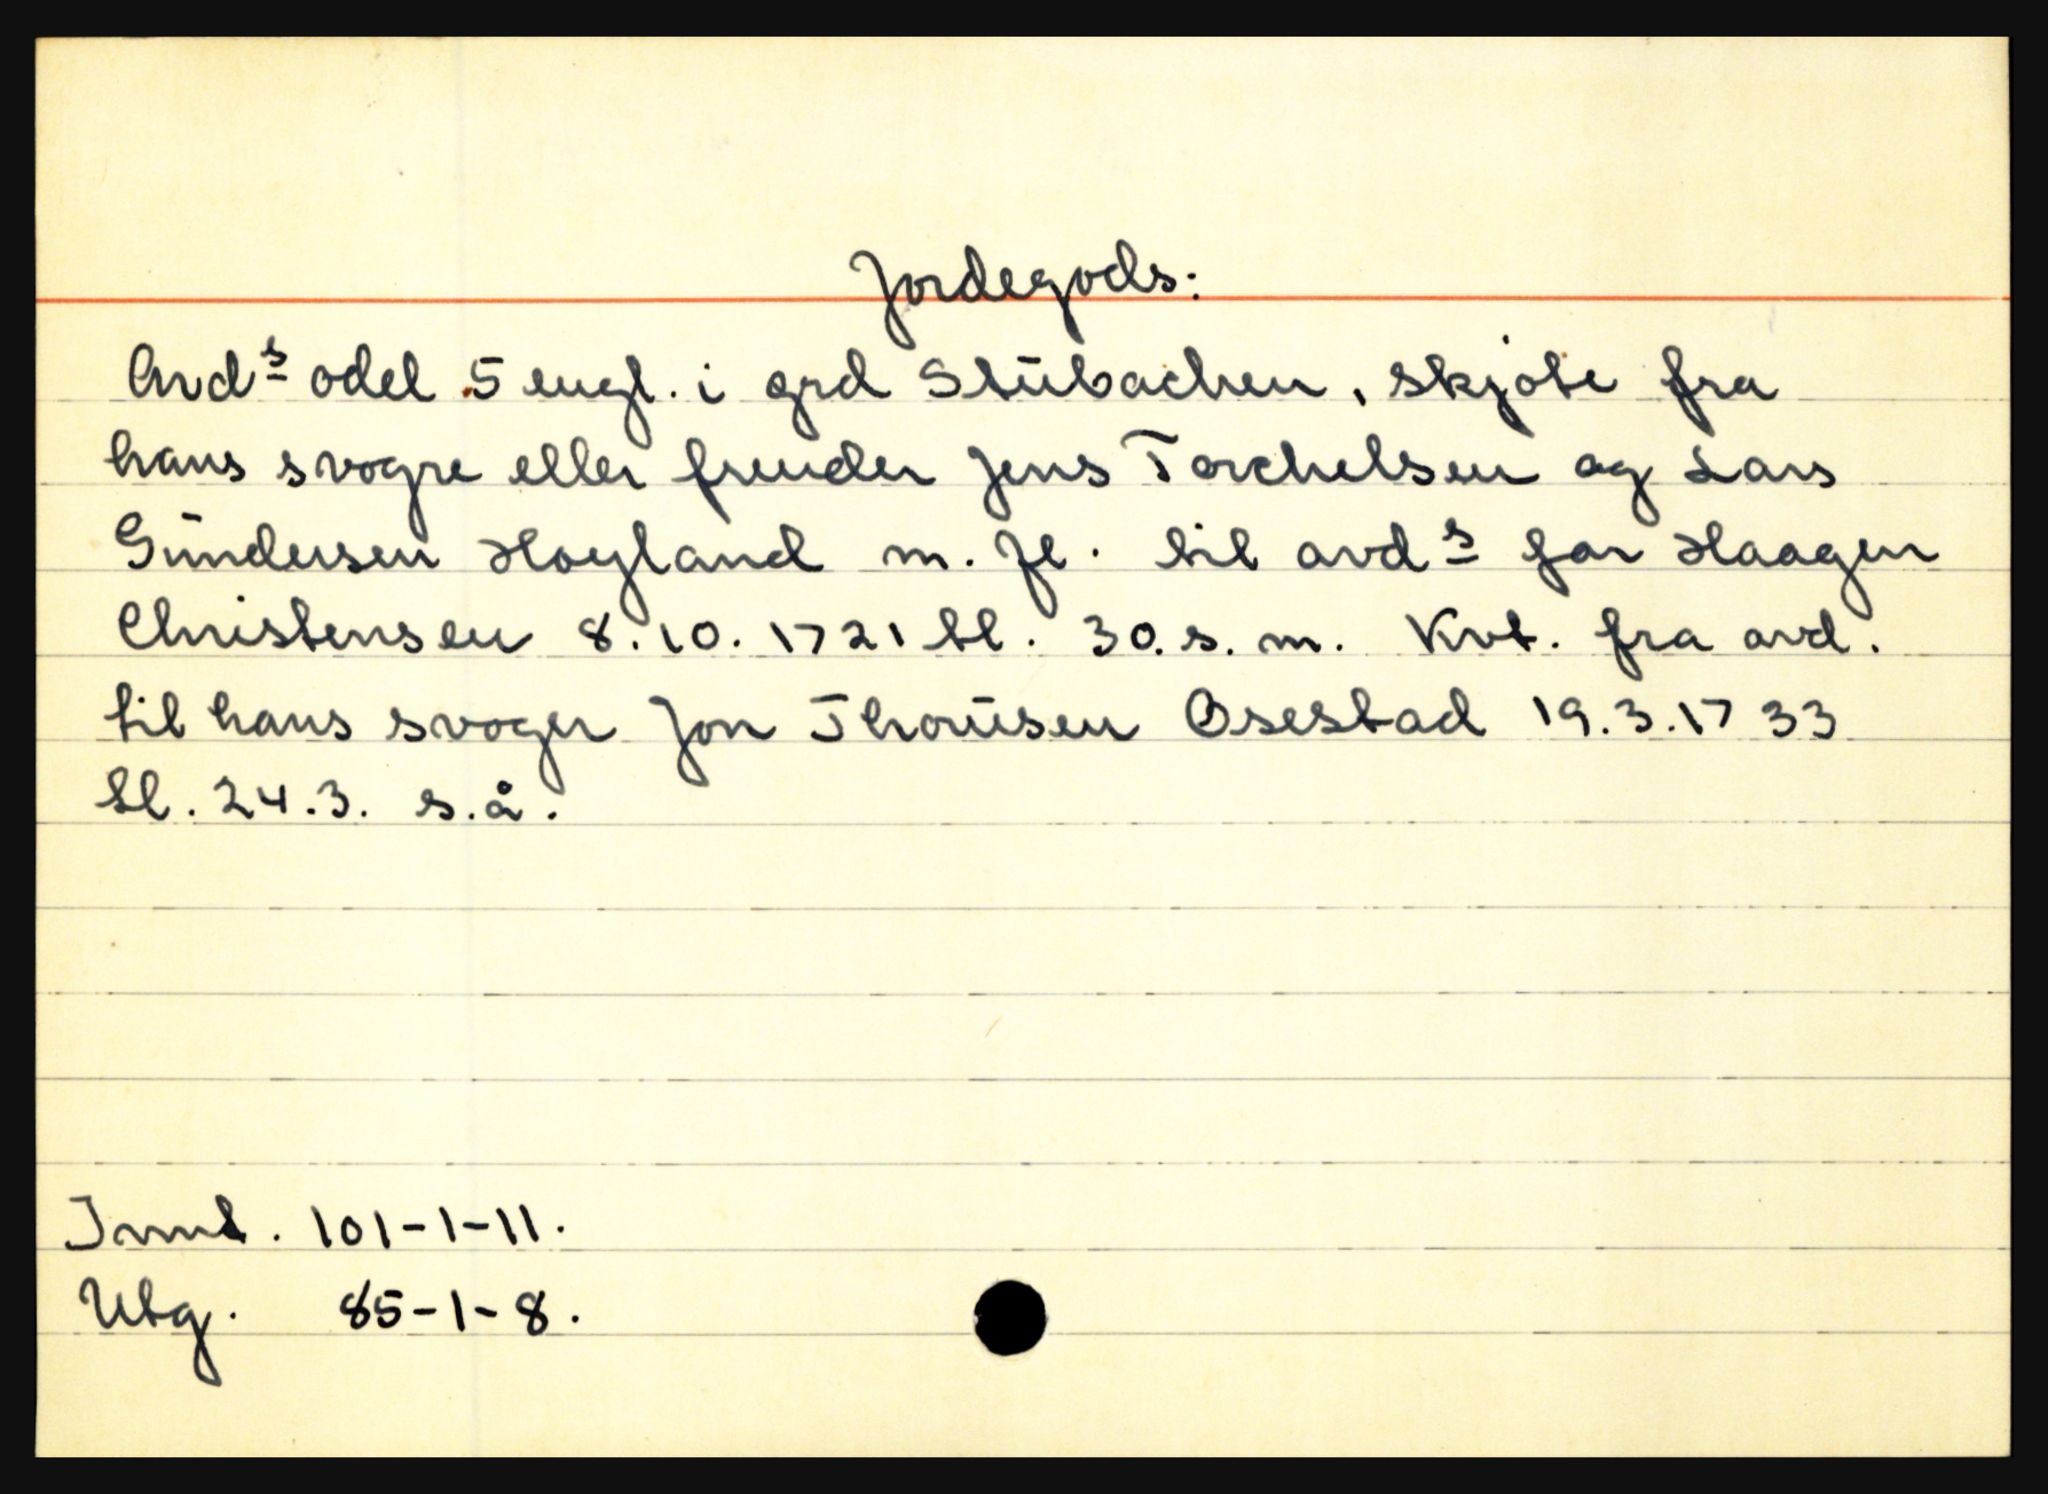 Jordegods:
Avds odel 5 engl. i grd Stübachen, skjøte fra
hans svogre eller frender Jens Torchelsen og Lars
Gündersen Høyland m. fl. til avds far Haagen
Christensen 8.10.1721 tl. 30. s. m. Kvt. fra avd.
til hans svoger Jon Thorüsen Osestad 19.3.1733
tl. 24.3. s.å.
Innt. 101-1-11.
Utg. 85-1-8.